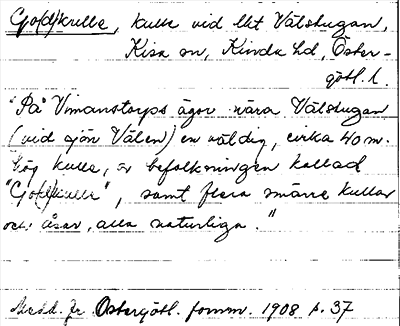 Go(d)kulle, kulle vid lht Välshagan,
Kisa sn, Kinda hd, Öster-
götl. l.
"På Vimanstorps ägor nära Välshagan
(vid sjön Välen) en väldig, cirka 40 m.
hög kulle, av befolkningen kallad
"Go(d)kulle", samt flera smärre kullar
och åsar, alla naturliga."
Medd. fr. Östergötl. fornm. 1908 s. 37